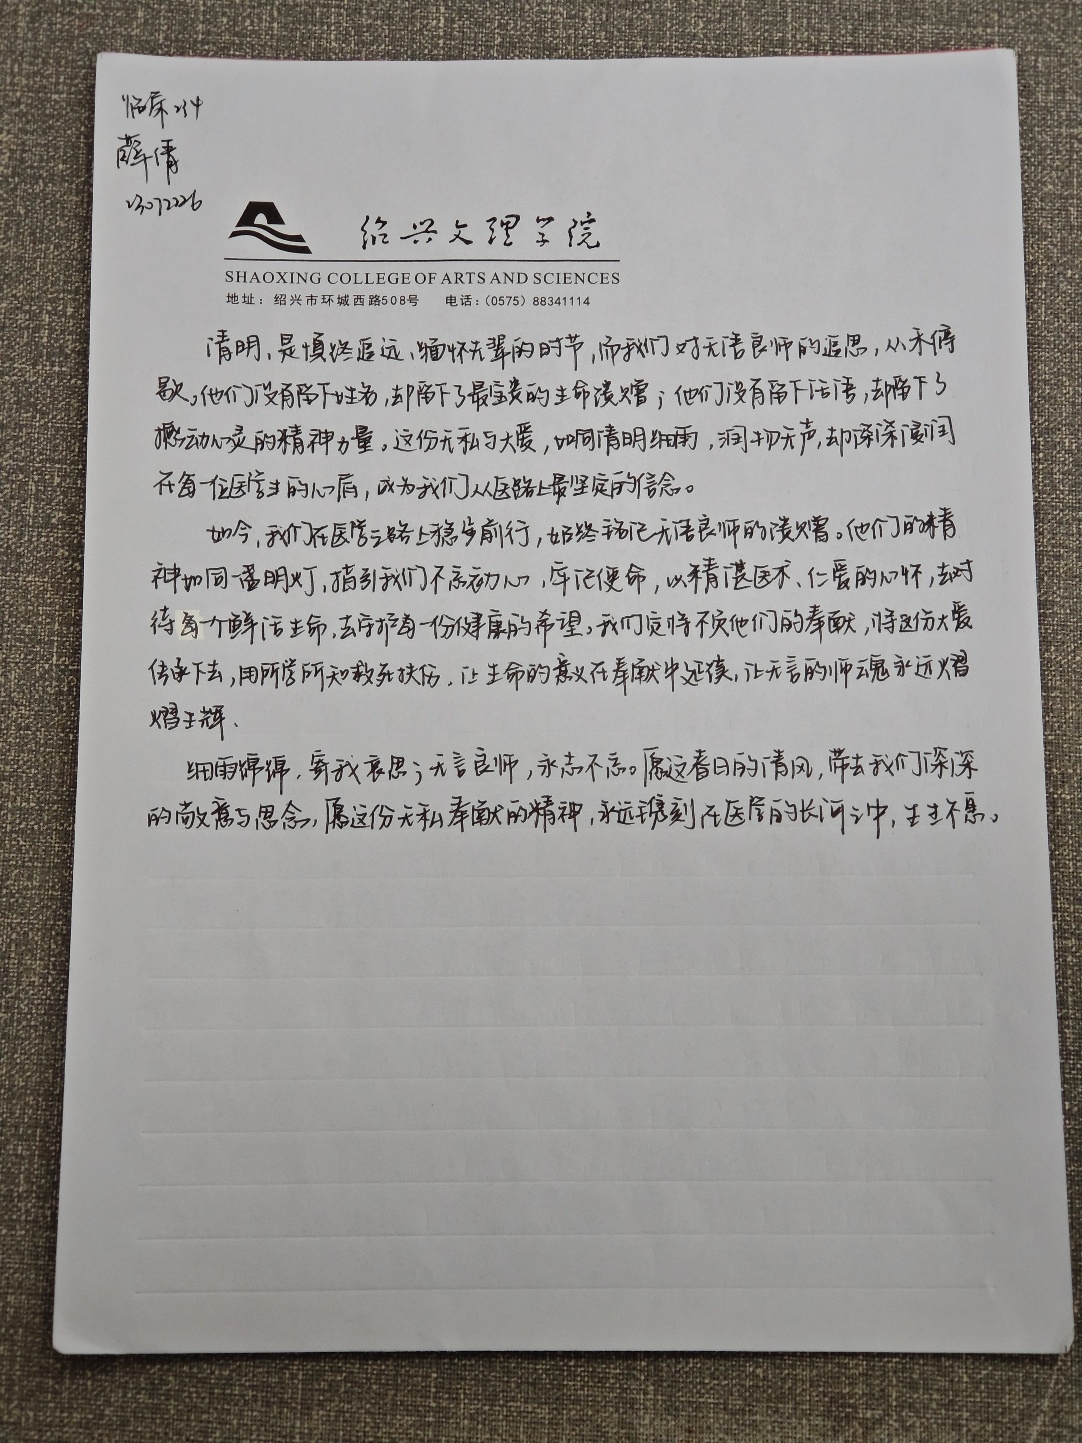 临床234
薛倩
23072226
绍兴文理学院
SHAOXING COLLEGE OF ARTS AND SCIENCES
地址：绍兴市环城西路508号 电话：(0575) 88341114
清明，是慎终追远、缅怀先辈的时节，而我们对无语良师的追思，从未停
歇。他们没有留下姓名，却留下了最宝贵的生命馈赠；他们没有留下话语，却留下了
撼动心灵的精神力量。这份无私与大爱，如同清明细雨，润物无声，却深深浸润
在每一位医学生的心间，成为我们从医路上最坚定的信念。
如今，我们在医学之路上稳步前行，始终铭记无语良师的馈赠。他们的精
神如同一盏明灯，指引我们不忘初心，牢记使命，以精湛医术、仁爱的心怀，去对
待每一个鲜活生命，去守护每一份健康的希望。我们定将不负他们的奉献，将这份大爱
传承下去，用所学所知救死扶伤，让生命的意义在奉献中延续，让无言的师魂永远熠
熠生辉、
细雨绵绵，寄我哀思；无言良师，永志不忘。愿这春日的清风，带去我们深深
的敬意与思念，愿这份无私奉献的精神，永远镌刻在医学的长河之中，生生不息。